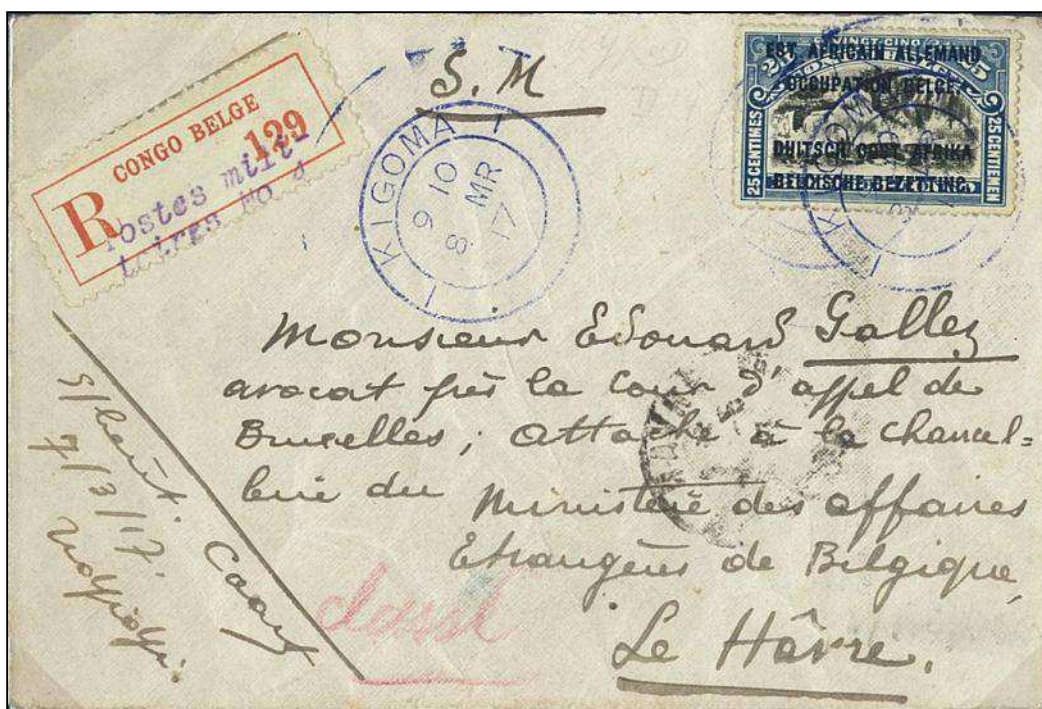 S.M
CONGO BELGE
R 129
Postes mili-
taires No 1
KIGOMA
9 10
8 MR
17
EST AFRICAIN ALLEMAND
OCCUPATION BELGE.
DUITSCH OOST AFRIKA
BELGISCHE BEZETTING.
25 CENTIMES
25 CENTIEMEN
KIGOMA
Monsieur Edouard Gallez
avocat près la cour d'appel de
Bruxelles; Attaché à la chancel=
lerie du Ministère des affaires
Etrangères de Belgique,
Le Hâvre.
S/Lieut.
7/3/17.
classé